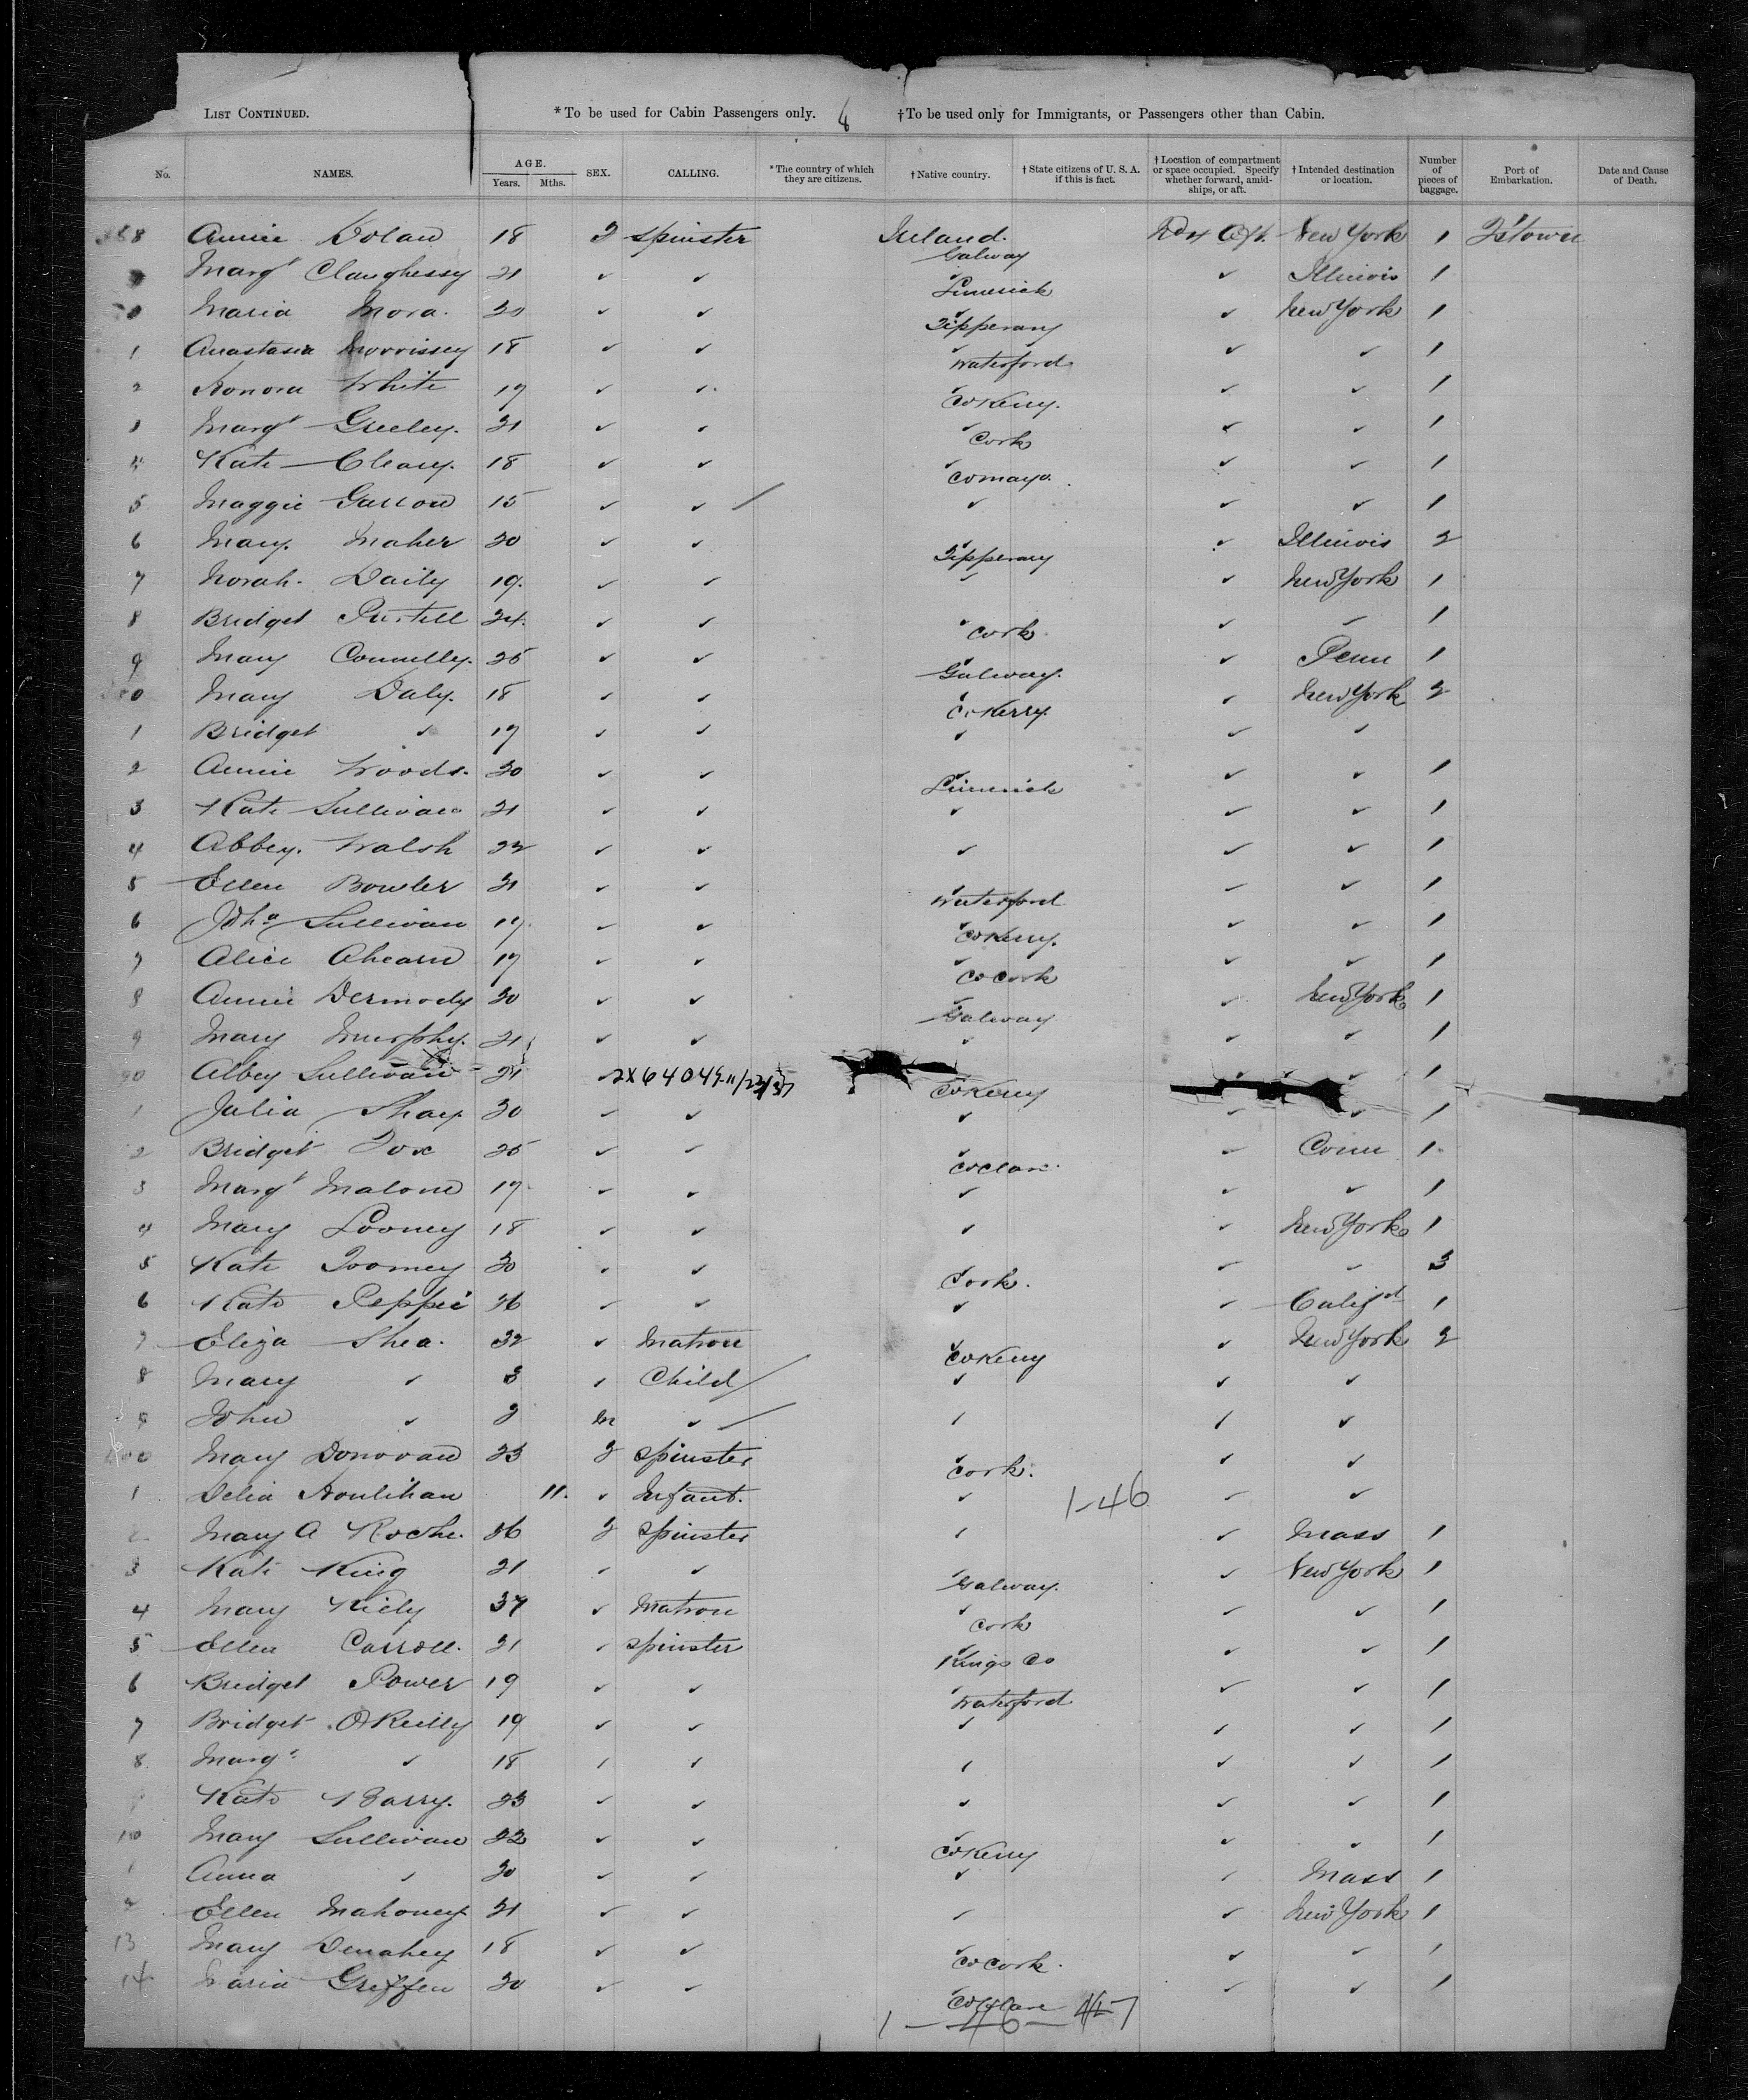 LIST CONTINUED. *To be used for Cabin Passengers only. 4 †To be used only for Immigrants, or Passengers other than Cabin.
No. NAMES. AGE. Years. Mths. SEX. CALLING. *The country of which they are citizens. †Native country. †State citizens of U. S. A. if this is fact. †Location of compartment or space occupied. Specify whether forward, amidships, or aft. †Intended destination or location. Number of pieces of baggage. Port of Embarkation. Date and Cause of Death.
368 Annie Dolan 18 F Spinster Ireland. Galway Aft. New York 1 Q'stown
Margt Claughessy 21 ✓ ✓ ✓ Limerick ✓ Illinois 1
70 Maria Mora. 20 ✓ ✓ ✓ Tipperary ✓ New York 1
1 Anastasia Morrissey 18 ✓ ✓ ✓ Waterford ✓ ✓ 1
2 Honora White 19 ✓ ✓ ✓ Co Kerry. ✓ ✓ 1
3 Margt Greeley. 21 ✓ ✓ ✓ Cork ✓ ✓ 1
4 Kate Cleary. 18 ✓ ✓ ✓ Co Mayo. ✓ ✓ 1
5 Maggie 15 ✓ ✓ / ✓ ✓ ✓ 1
6 Mary. Maher 20 ✓ ✓ ✓ Tipperary ✓ Illinois 2
7 Norah. Daily 19. ✓ ✓ ✓ ✓ New York 1
8 Bridget Purtell 24. ✓ ✓ ✓ Cork. ✓ ✓ 1
9 Mary Connelly. 25 ✓ ✓ ✓ Galway. ✓ Penn 1
380 Mary Daly. 18 ✓ ✓ ✓ Co Kerry. ✓ New York 2
1 Bridget ✓ 17 ✓ ✓ ✓ ✓ ✓
2 Annie Woods. 20 ✓ ✓ ✓ Limerick ✓ ✓ 1
3 Kate Sullivan 21 ✓ ✓ ✓ ✓ ✓ 1
4 Abbey. Walsh 22 ✓ ✓ ✓ ✓ ✓ 1
5 Ellen Bowler 21 ✓ ✓ ✓ Waterford ✓ ✓ 1
6 Joha Sullivan 19. ✓ ✓ ✓ Co Kerry. ✓ ✓ 1
7 Alice Ahearn 17 ✓ ✓ ✓ Co Cork ✓ ✓ 1
8 Annie Dermody 20 ✓ ✓ ✓ Galway ✓ New York 1
9 Mary Murphy. 21 ✓ ✓ ✓ ✓ ✓ 1
90 Abbey Sullivan 21 ✓ 2X64049-11/22/37 Co Kerry ✓ ✓ 1
1 Julia Shay 20 ✓ ✓ ✓ ✓ ✓ 1
2 Bridget Fox 25 ✓ ✓ ✓ Co Clare. ✓ Conn 1
3 Margt Malone 19. ✓ ✓ ✓ ✓ ✓ 1
4 Mary Looney 18 ✓ ✓ ✓ ✓ New York 1
5 Kate Toomey 20 ✓ ✓ Cork. ✓ ✓ 3
6 Kate 26 ✓ ✓ ✓ ✓ 1
7 Eliza Shea. 32 ✓ Matron ✓ Co Kerry ✓ New York 2
8 Mary ✓ 3 ✓ Child / ✓ ✓ ✓
9 John ✓ 2 M ✓ / ✓ ✓ ✓
400 Mary Donovan 23 F Spinster ✓ Cork. ✓ ✓
1 Delia Houlihan 11. ✓ Infant. ✓ 1-46 ✓ ✓
2 Mary A Roche. 26 F Spinster ✓ ✓ Mass 1
3 Kate King 21 ✓ ✓ ✓ Galway. ✓ New York 1
4 Mary Kiely 37 ✓ Matron ✓ Cork ✓ ✓ 1
5 Ellen Carroll. 21 ✓ Spinster ✓ Kings Co ✓ ✓ 1
6 Bridget Power 19 ✓ ✓ ✓ Waterford ✓ ✓ 1
7 Bridget O'Reilly 19 ✓ ✓ ✓ ✓ ✓ 1
8 Margt ✓ 18 ✓ ✓ ✓ ✓ ✓ 1
9 Kate Barry. 23 ✓ ✓ ✓ ✓ ✓ 1
10 Mary Sullivan 22 ✓ ✓ ✓ Co Kerry ✓ ✓ 1
1 Anna ✓ 20 ✓ ✓ ✓ ✓ Mass 1
2 Ellen Mahoney 21 ✓ ✓ ✓ ✓ New York 1
13 Mary Denahey 18 ✓ ✓ ✓ Co Cork. ✓ ✓ 1
14 Maria Griffen 20 ✓ ✓ ✓ Co Clare ✓ ✓ 1
1 — 46 — 47